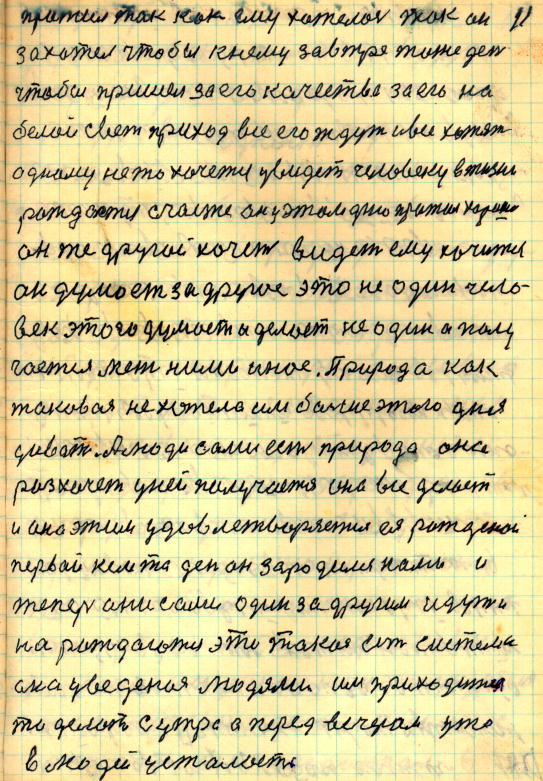 прожил так как ему хотелос так он 11
захотел чтобы к нему завтре тоже ден
чтобы пришел за его качества за его на
белой свет приход все его ждут и все хотят
одному нето хочется увидет человеку в жизни
рождается счастие он у этом дню прожил хорошо
он же другой хочет видет ему хочится
он думоет за другое это не один чело-
век этого думоет а делоет не один а полу
чается меж ними иное. Природа как
таковая не хотела им болше этого дня
дават. А люди сами ест природа она
росхочет у ней получается она все делоет
и она этим удовлетворяется ея рожденой
первой кем та ден он зародился нами и
тепер они сами один за другим идут и
на рождаются это такоя ест система
она уведеная людями им приходится
то делат с утра а перед вечером уже
в людей усталость